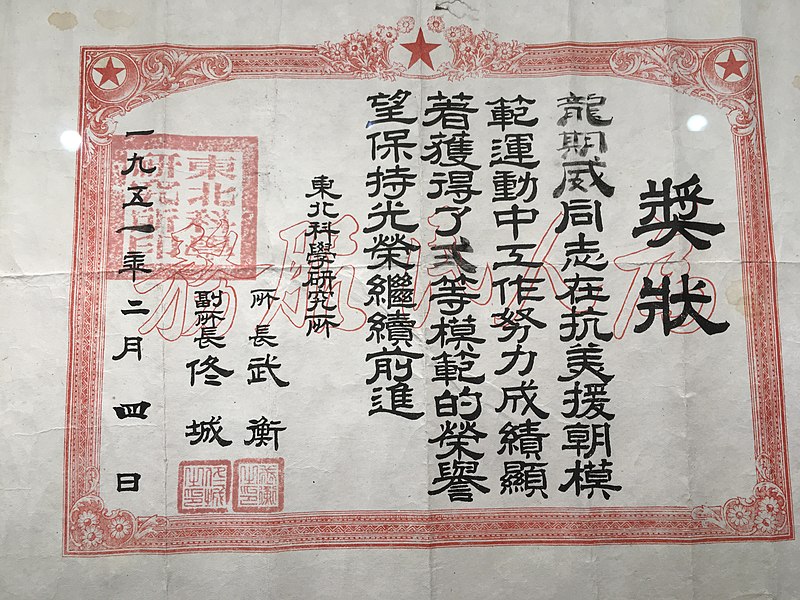 獎狀
龍期威同志在抗美援朝模
範運動中工作努力成績顯
著獲得了弍等模範的榮譽
望保持光榮繼續前進
東北科學研究所
所長武衡
副所長佟城
一九五一年二月四日
東北科學
研究所印
為人民服務
佟城
之印
武衡
之印